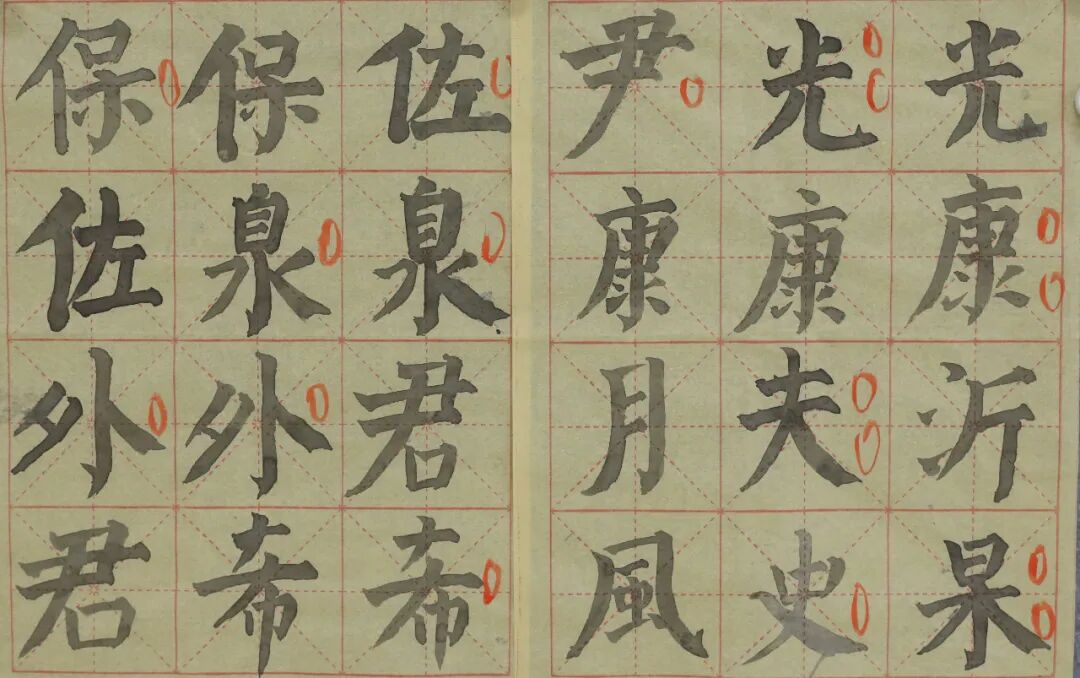 保保佐
佐泉泉
外外君
君希希
尹光光
康康康
月夫沂
風史杲